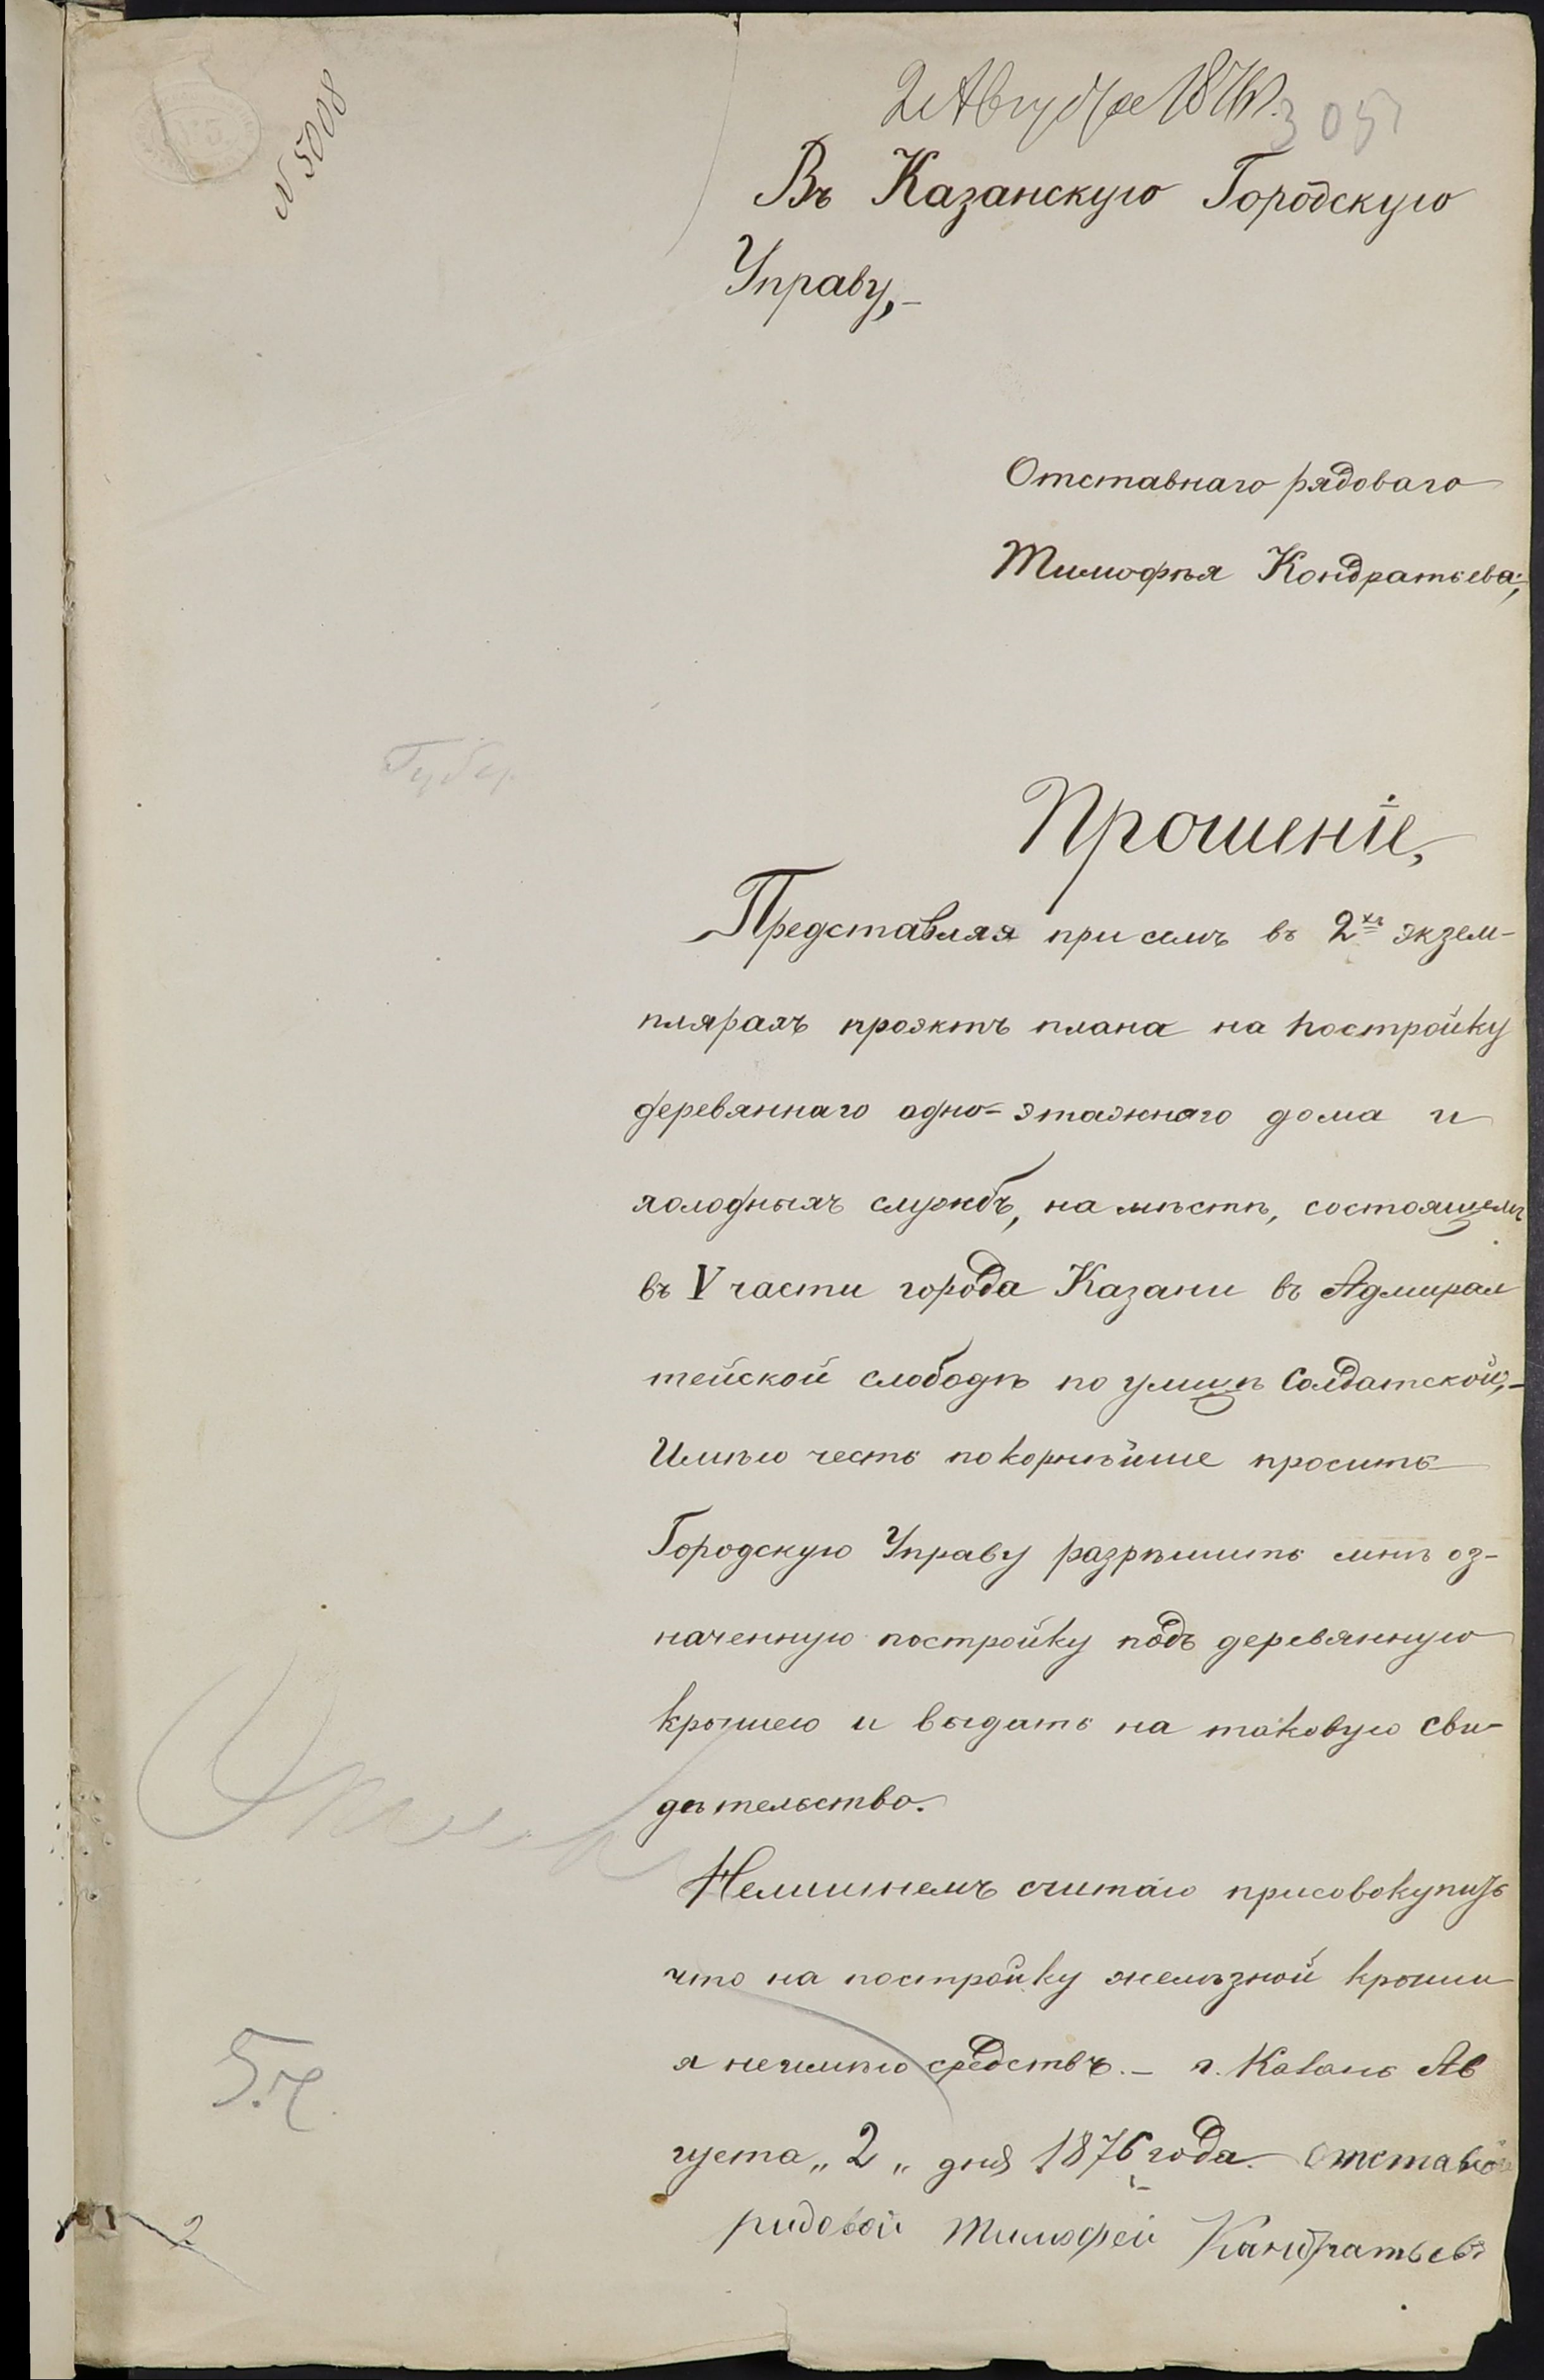 2 Августа 1876.
305
N 5008
Въ Казанскую Городскую
Управу,–
Отставнаго рядоваго
Тимофѣя Кондратьева,
Губер
Прошеніе,
Представляя при семъ въ 2хъ экзем-
плярахъ проэктъ плана на постройку
деревяннаго одно-этажнаго дома и
холодныхъ службъ, на мѣстѣ, состоящемъ
въ V части города Казани въ Адмирал
тейской слободѣ по улицѣ Солдатской,–
Имѣю честь покорнѣйше просить
Городскую Управу разрѣшить мнѣ оз-
наченную постройку подъ деревянную
крышею и выдать на таковую сви-
дѣтельство.
Нелишнемъ считаю присовокупить
что на постройку желѣзной крыши
я неимѣю средствъ.– г. Казань Ав
густа „ 2 „ дня 1876 года. Отставной
ридовой Тимофей Кандратьевъ
5.ч.
2